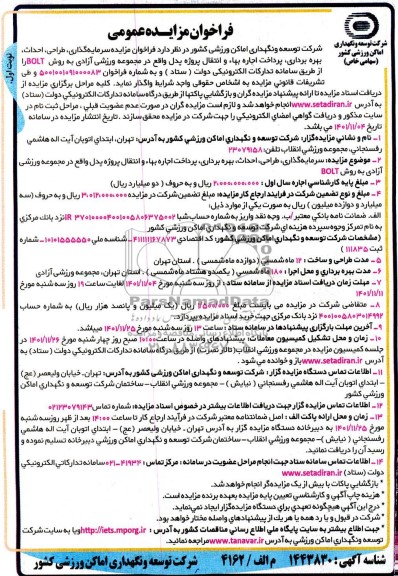 فراخوان مزایده عمومی
شرکت توسعه و نگهداری
اماکن ورزشی کشور
(سهامی خاص)
نوبت اول
شرکت توسعه ونگهداری اماکن ورزشی کشور در نظر دارد فراخوان مزایده سرمایه‌گذاری، طراحی، احداث،
بهره برداری، پرداخت اجاره بها، و انتقال پروژه پدل واقع در مجموعه ورزشی آزادی به روش BOLT را
از طریق سامانه تدارکات الکترونیکی دولت ( ستاد ) و به شماره فراخوان 5001001091000083 و طی
تشریفات قانونی مزایده به اشخاص حقوقی واجد شرایط واگذار نماید. کلیه مراحل برگزاری مزایده از
دریافت اسناد مزایده تا ارائه پیشنهاد مزایده گران و بازگشایی پاکتها از طریق درگاه سامانه تدارکات الکترونیکی دولت ( ستاد )
به آدرس www.setadiran.ir انجام خواهد شد و لازم است مزایده گران در صورت عدم عضویت قبلی، مراحل ثبت نام در
سایت مذکور و دریافت گواهی امضای الکترونیکی را جهت شرکت در مزایده محقق سازند. تاریخ انتشار مزایده در سامانه
تاریخ 1401/11/04 می باشد.
1- نام و نشانی مزایده‌گزار: شرکت توسعه و نگهداری اماکن ورزشی کشور به آدرس: تهران، ابتدای اتوبان آیت اله هاشمی
رفسنجانی، مجموعه ورزشی انقلاب تلفن: 23079158
2- موضوع مزایده: سرمایه‌گذاری، طراحی، احداث، بهره برداری، پرداخت اجاره بها، و انتقال پروژه پدل واقع در مجموعه ورزشی
آزادی به روش BOLT
3- مبلغ پایه کارشناسی اجاره سال اول: 2.000.000.000 ریال و به حروف ( دو میلیارد ریال)
4- مبلغ و نوع تضمین شرکت در فرایند ارجاع کار مزایده: مبلغ تضمین شرکت در مزایده 3.012.000.000 ریال و به حروف (سه
میلیارد و دوازده میلیون ) ریال به صورت یکی از موارد ذیل:
الف. ضمانت نامه بانکی معتبر /ب. وجه نقد واریز به شماره حساب شبا
به نام تمرکز وجوه سپرده هزینه ای شرکت توسعه و نگهداری اماکن ورزشی کشور
5- مدت طراحی و ساخت: 12 ماه شمسی (دوازده ماه شمسی) . استان تهران
6- مدت بهره برداری و محل اجرا: 180 ماه شمسی ( یکصد و هشتاد ماه شمسی ) . استان تهران ، مجموعه ورزشی آزادی
7- مهلت زمان دریافت اسناد مزایده از سامانه ستاد: از روز سه شنبه مورخ 1401/11/04 لغایت ساعت 19 روز سه شنبه مورخ
1401/11/11
8- متقاضی شرکت در مزایده می بایست مبلغ 1.500.000 ریال (یک میلیون و پانصد هزار ریال) به شماره حساب
نزد بانک مرکزی جهت خرید اسناد مزایده بپردازد.
9- آخرین مهلت بارگزاری پیشنهادها در سامانه ستاد: ساعت 13 روز سه شنبه مورخ 1401/11/25 میباشد.
10- زمان و محل تشکیل کمیسیون معاملات: پیشنهادهای واصله در ساعت 10:00 صبح روز چهار شنبه مورخ 1401/11/26 در
جلسه کمیسیون مزایده در مجموعه ورزشی انقلاب (تالار شرکت) از طریق درگاه سامانه تدارکات الکترونیکی دولت (ستاد) به
آدرس www.setadiran.ir باز و خوانده می شود.
11- اطلاعات تماس دستگاه مزایده گزار: شرکت توسعه و نگهداری اماکن ورزشی کشور به آدرس: تهران، خیابان ولیعصر (عج)
- ابتدای اتوبان آیت اله هاشمی رفسنجانی ( نیایش ) – مجموعه ورزشی انقلاب – ساختمان شرکت توسعه و نگهداری اماکن
ورزشی کشور
12- اطلاعات تماس مزایده گزار جهت دریافت اطلاعات بیشتر در خصوص اسناد مزایده: شماره تماس 02123079143
13- زمان و محل ارائه پاکت الف: اصل ضمانتنامه معتبر شرکت در فرآیند ارجاع کار تا ساعت 14:00 بعد از ظهر روز سه شنبه
مورخ 1401/11/25 به دبیرخانه دستگاه مزایده گزار به آدرس تهران ـ خیابان ولیعصر (عج) – ابتدای اتوبان آیت اله هاشمی
رفسنجانی ( نیایش )– مجموعه ورزشی انقلاب– ساختمان شرکت توسعه و نگهداری اماکن ورزشی دبیرخانه تسلیم نموده و
رسید آن را دریافت نمایند.
14- اطلاعات تماس سامانه ستاد جهت انجام مراحل عضویت در سامانه: مرکز تماس: 41934-021 سامانه تدارکات الکترونیکی
دولت (ستاد) www.setadiran.ir
* بازگشایی پاکات با بیش از یک مزایده‌گر انجام خواهد شد.
* هزینه چاپ آگهی و کارشناسی تعیین پایه مزایده بعهده برنده مزایده است.
* درج این آگهی هیچگونه تعهدی برای دستگاه مزایده گزار ایجاد نمی نماید.
* شرکت در قبول و یا رد همه یا هر یک از پیشنهادهای واصله مختار خواهد بود.
* جهت اطلاع بیشتر به سایت پایگاه ملی اطلاع رسانی مناقصات کشور به آدرس: http://iets.mporg.ir و یا به سایت شرکت
به آدرس www.tanavar.ir مراجعه نمائید.
شناسه آگهی: 1443830 م الف / 4162
شرکت توسعه و نگهداری اماکن ورزشی کشور